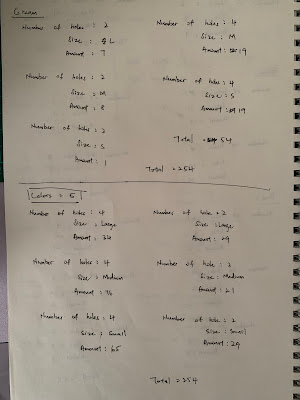 Cream
Number of holes : 2
Size : L
Amount : 7
Number of holes : 4
Size : M
Amount : 19
Number of holes : 2
Size : M
Amount : 8
Number of holes : 4
Size : S
Amount : 19
Number of holes : 2
Size : S
Amount : 1
Total = 54
Total = 254
Colors = 5
Number of holes : 4
Size : Large
Amount :
Number of holes = 2
Size : Large
Amount : 29
Number of holes : 4
Size : Medium
Amount :
Number of holes : 2
Size : Medium
Amount : 21
Number of holes : 4
Size : Small
Amount : 65
Number of holes : 2
Size : Small
Amount : 29
Total = 254